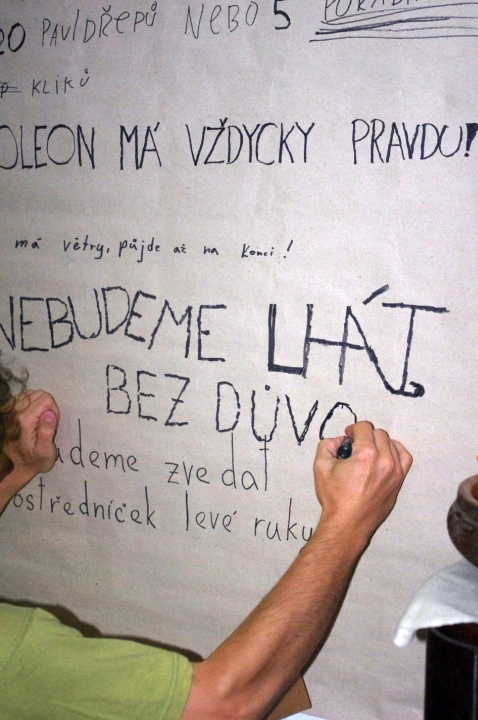 20 PAVIDŘEPŮ NEBO 5
KLIKŮ
OLEON MÁ VŽDYCKY PRAVDU!
má větry, půjde až na konci!
NEBUDEME LHÁT
BEZ DŮVO
udeme zvedat
ostředníček levé ruky